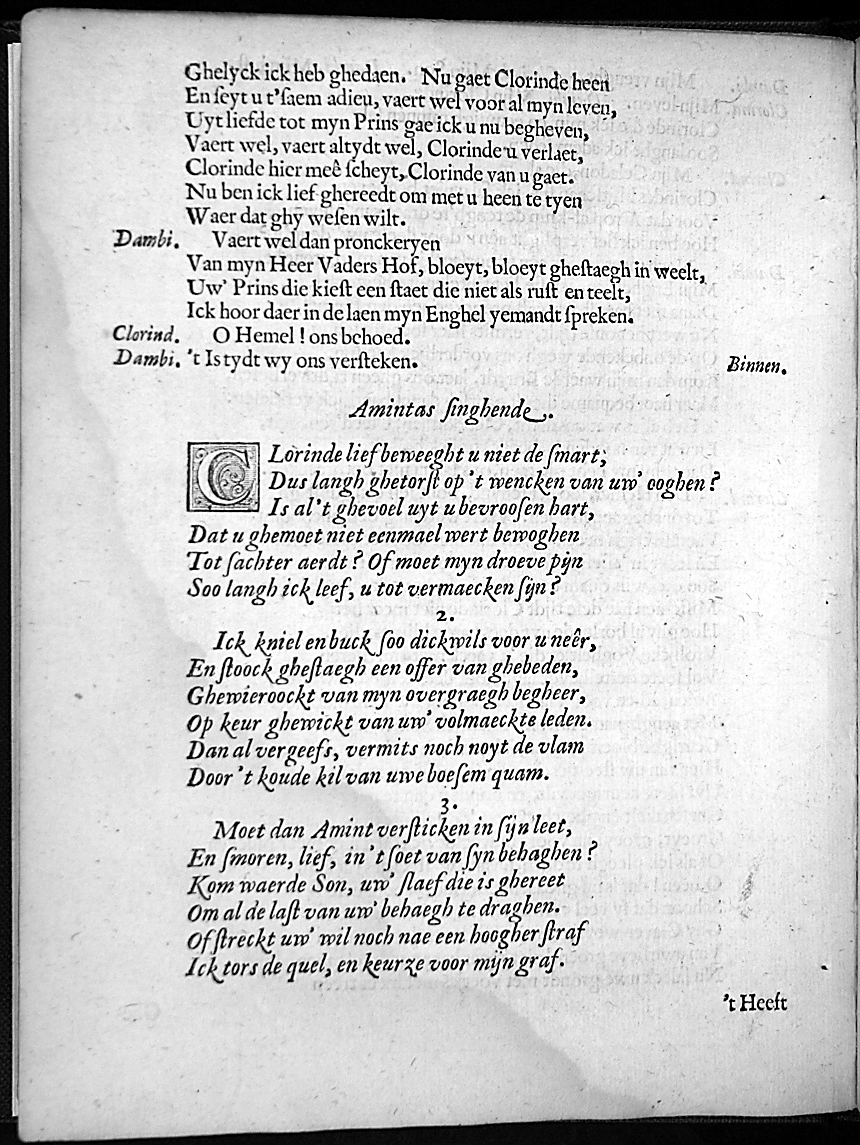 Ghelyck ick heb ghedaen. Nu gaet Clorinde heen
En ſeyt u t'ſaem adieu, vaert wel voor al myn leven,
Uyt liefde tot myn Prins gae ick u nu begheven,
Vaert wel, vaert altydt wel, Clorinde u verlaet,
Clorinde hier meê ſcheyt, Clorinde van u gaet.
Nu ben ick lief ghereedt om met u heen te tyen
Waer dat ghy weſen wilt.
Dambi. Vaert wel dan pronckeryen
Van myn Heer Vaders Hof, bloeyt, bloeyt gheſtaegh in weelt,
Uw' Prins die kieſt een ſtaet die niet als ruſt en teelt,
Ick hoor daer in de laen myn Enghel yemandt ſpreken.
Clorind. O Hemel! ons behoed.
Dambi. 't Is tydt wy ons verſteken. Binnen.
Amintas ſinghende.
CLorinde lief beweeght u niet de ſmart,
Dus langh ghetorſt op 't wencken van uw' ooghen?
Is al 't ghevoel uyt u bevrooſen hart,
Dat u ghemoet niet eenmael wert bewoghen
Tot ſachter aerdt? Of moet myn droeve pijn
Soo langh ick leef, u tot vermaecken ſijn?
2.
Ick kniel en buck ſoo dickwils voor u neêr,
En ſtoock gheſtaegh een offer van ghebeden,
Ghewieroockt van myn overgraegh begheer,
Op keur ghewickt van uw' volmaeckte leden.
Dan al vergeefs, vermits noch noyt de vlam
Door 't koude kil van uwe boeſem quam.
3.
Moet dan Amint verſticken in ſijn leet,
En ſmoren, lief, in 't ſoet van ſyn behaghen?
Kom waerde Son, uw' ſlaef die is ghereet
Om al de laſt van uw' behaegh te draghen.
Of ſtreckt uw' wil noch nae een hoogher ſtraf
Ick tors de quel, en keur ze voor mijn graf.
't Heeft